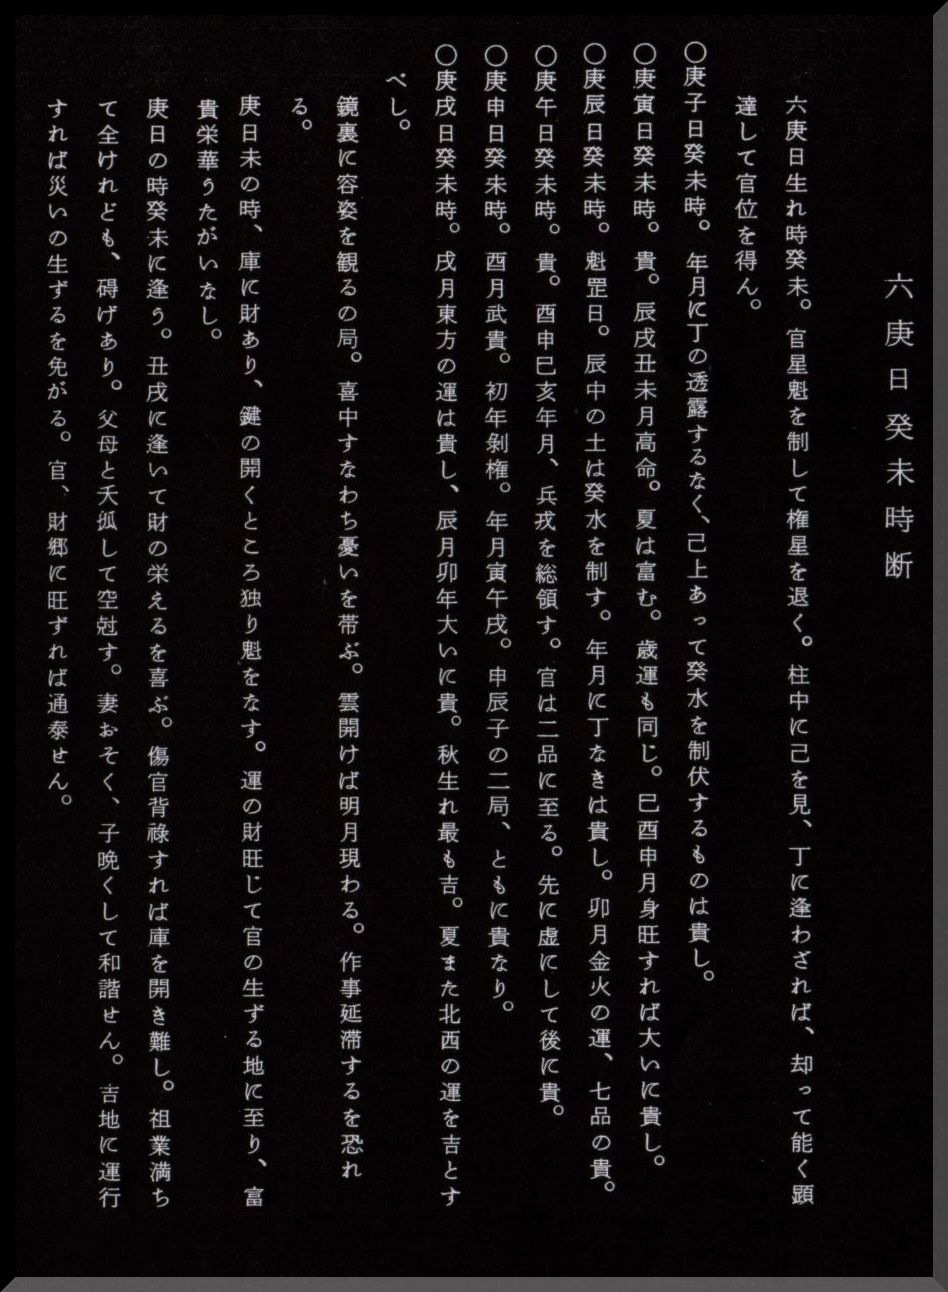 六庚日癸未時断
六庚日生れ時癸未。官星魁を制して権星を退く。柱中に己を見、丁に逢わざれば、却って能く顕
達して官位を得ん。
〇庚子日癸未時。年月に丁の透露するなく、己上あって癸水を制伏するものは貴し。
〇庚寅日癸未時。貴。辰戌丑未月高命。夏は富む。歳運も同じ。巳酉申月身旺すれば大いに貴し。
〇庚辰日癸未時。魁罡日。辰中の土は癸水を制す。年月に丁なきは貴し。卯月金火の運、七品の貴。
〇庚午日癸未時。貴。酉申巳亥年月、兵戎を総領す。官は二品に至る。先に虚にして後に貴。
〇庚申日癸未時。酉月武貴。初年剝権。年月寅午戌。申辰子の二局、ともに貴なり。
〇庚戌日癸未時。戌月東方の運は貴し、辰月卯年大いに貴。秋生れ最も吉。夏また北西の運を吉とす
べし。
鏡裏に容姿を観るの局。喜中すなわち憂いを帯ぶ。雲開けば明月現わる。作事延滞するを恐れ
る。
庚日未の時、庫に財あり、鍵の開くところ独り魁をなす。運の財旺じて官の生ずる地に至り、富
貴栄華うたがいなし。
庚日の時癸未に逢う。丑戌に逢いて財の栄えるを喜ぶ。傷官背祿すれば庫を開き難し。祖業満ち
て全けれども、碍げあり。父母と夭孤して空尅す。妻おそく、子晩くして和諧せん。吉地に運行
すれば災いの生ずるを免がる。官、財郷に旺ずれば通泰せん。